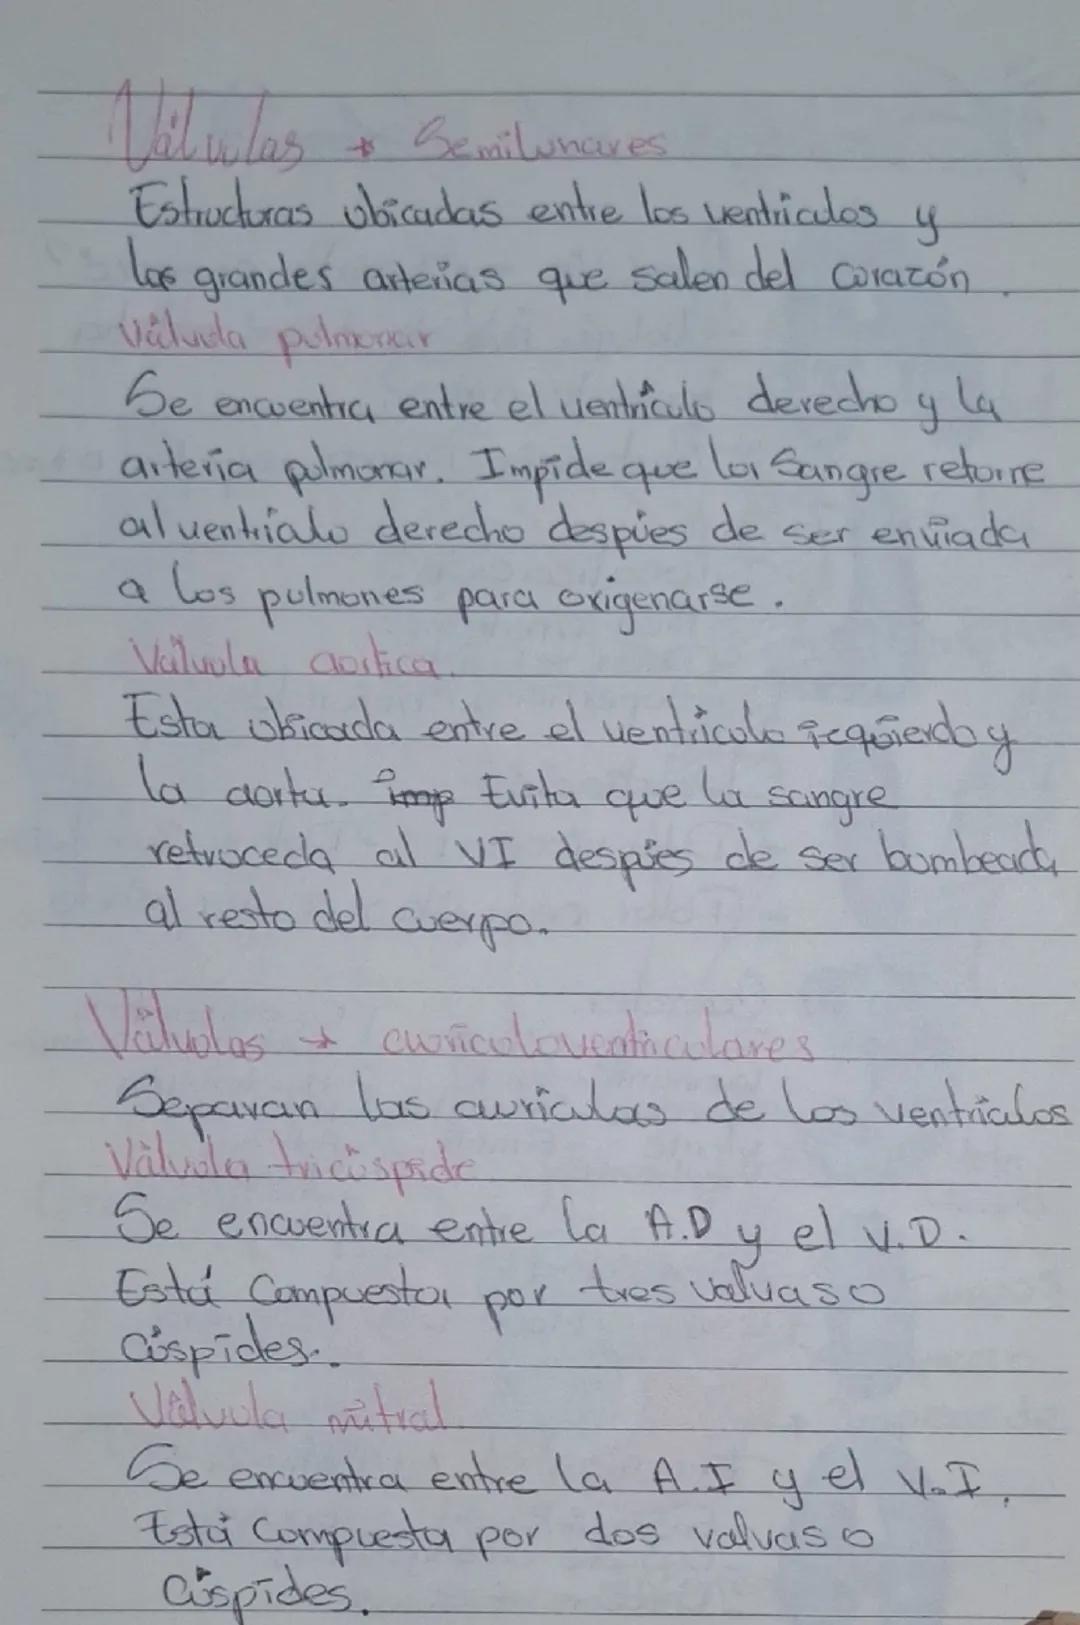 Válvulas * Semilunares
Estructuras ubicadas entre los ventriculos y
las grandes arterias que salen del corazón.
Válvula pulmonar
Se encuentra entre el ventrículo derecho y la
arteria pulmonar. Impide que la Sangre retorne
al ventrículo derecho despúes de ser enviada
a los pulmones para oxigenarse.
Válvula aortica.
Esta ubicada entre el ventrículo izquierdo y
la aorta. imp Evita que la sangre
retroceda al VI despúes de ser bombeada
al resto del cuerpo.
Válvulas * auriculoventriculares
Separan las auriculas de los ventriculos
Válvula tricúspide
Se encuentra entre la A.D y el V.D.
Está Compuesta por tres valvas o
cúspides.
Válvula mitral.
Se encuentra entre la A.I y el V.I.
Está Compuesta por dos valvas o
cúspides.